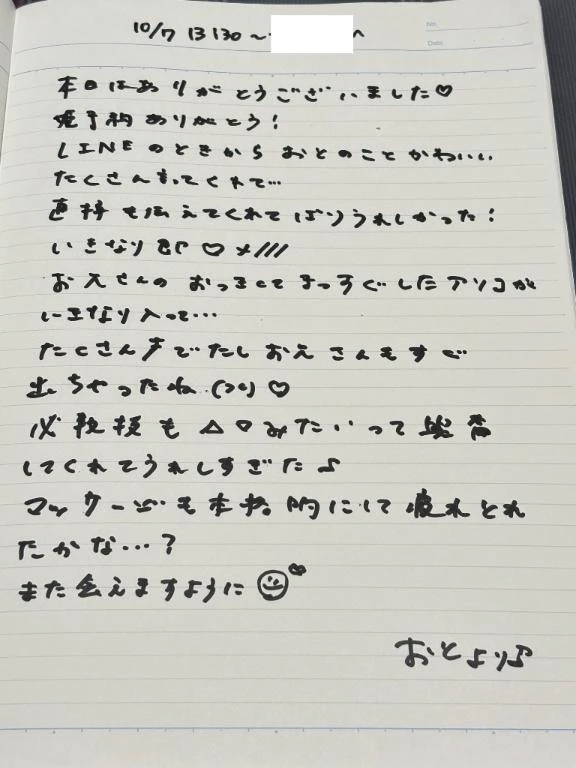 10/7 13:30~ へ
No.
Date
本日はありがとうございました♡
姫予約ありがとう!
LINEのときから おとのこと かわいい
たくさん言ってくれて…
直接も伝えてくれて ばりうれしかった!
いきなり即♡〆///
お兄さんの おっきくて まっすぐしたアソコが
いきなり入って…
たくさん声でたし お兄さんもすぐ
出ちゃったね ♡
必殺技も △♡みたいって 興奮
してくれて うれしすぎた♪
マッサージも本格的にして 疲れとれ
たかな…?
また会えますように
おとより♪